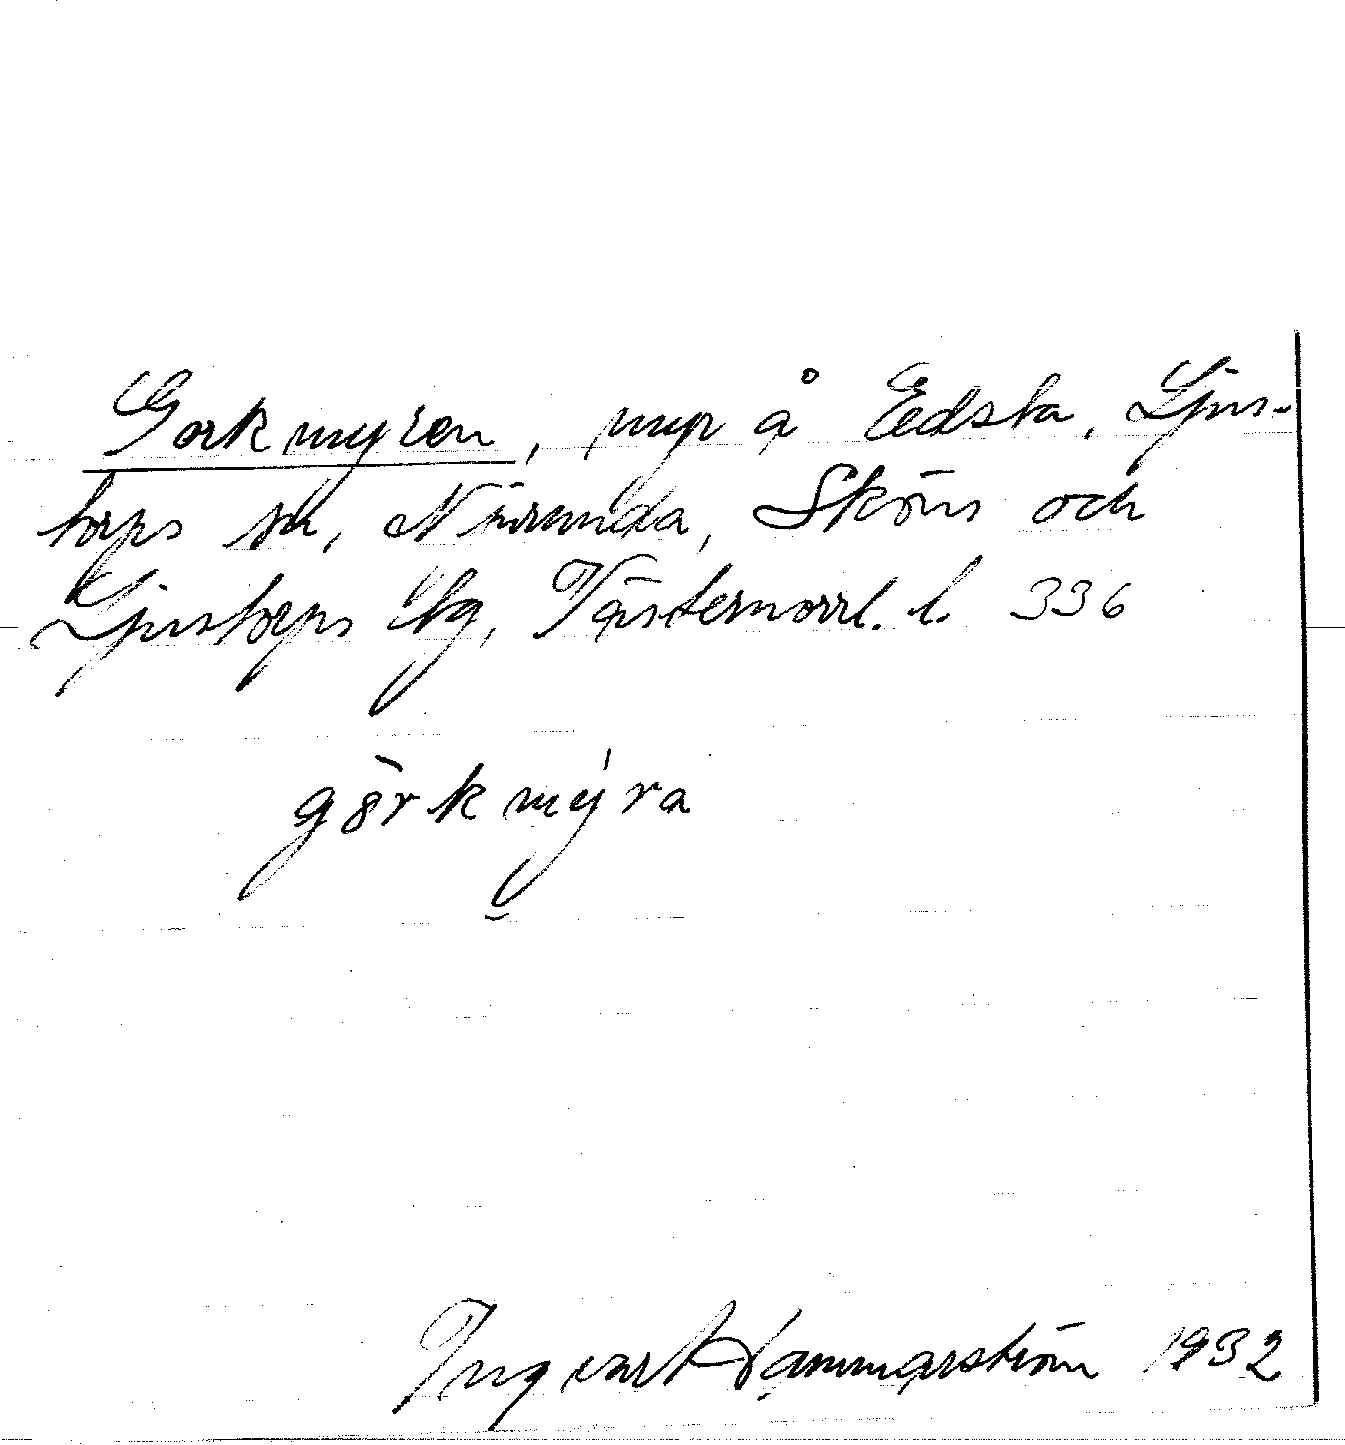 Gorkmyren, myr å Edsta, Ljus-
torps sn, Njurunda, Sköns och
Ljustorps tg, Västernorrl. l. 336
Ingvar Hammarström 1932